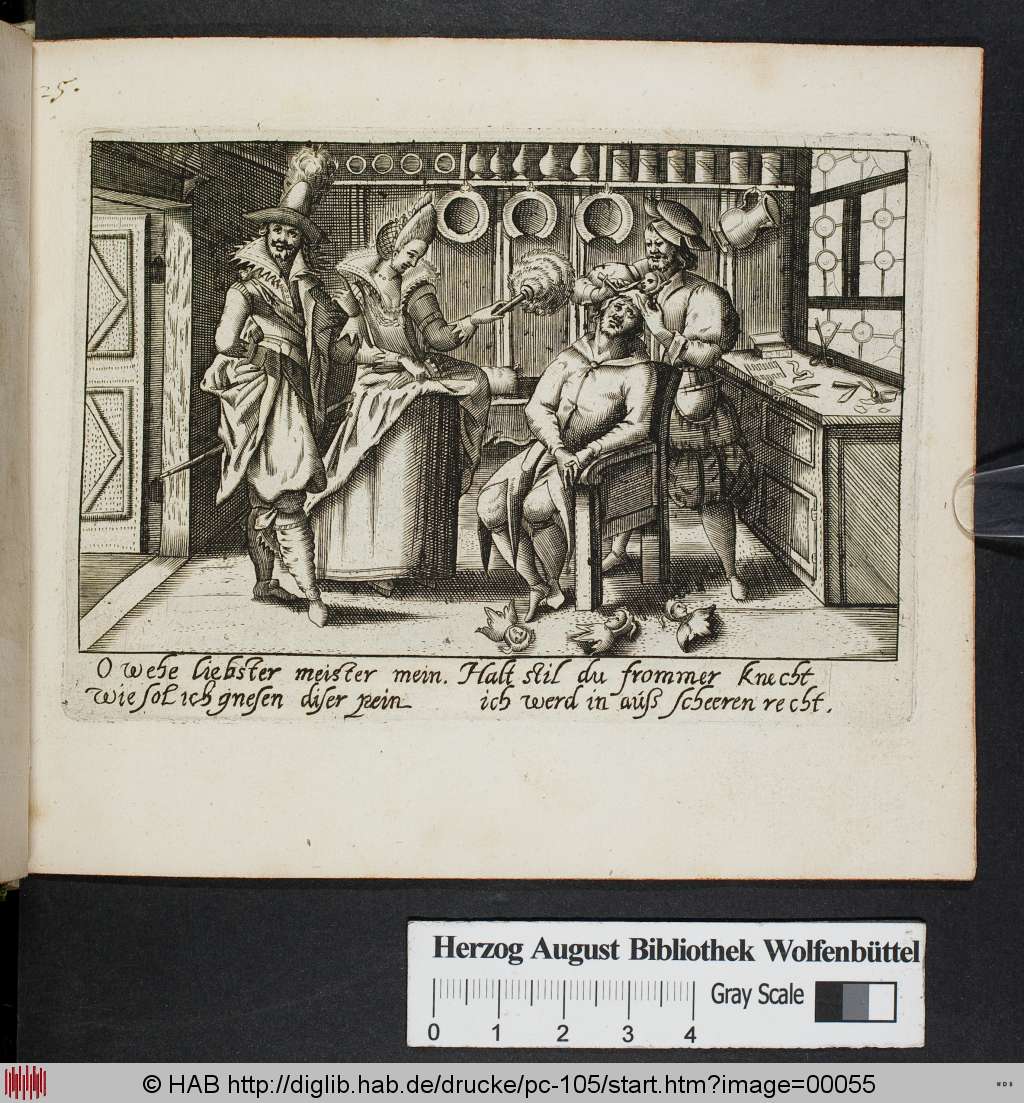 25.
O wehe liebster meister mein. Halt stil du frommer Knecht
wie sol ich gnesen diser pein ich werd in auß scheeren recht.
Herzog August Bibliothek Wolfenbüttel
Gray Scale
0 1 2 3 4
© HAB http://diglib.hab.de/drucke/pc-105/start.htm?image=00055
WDB